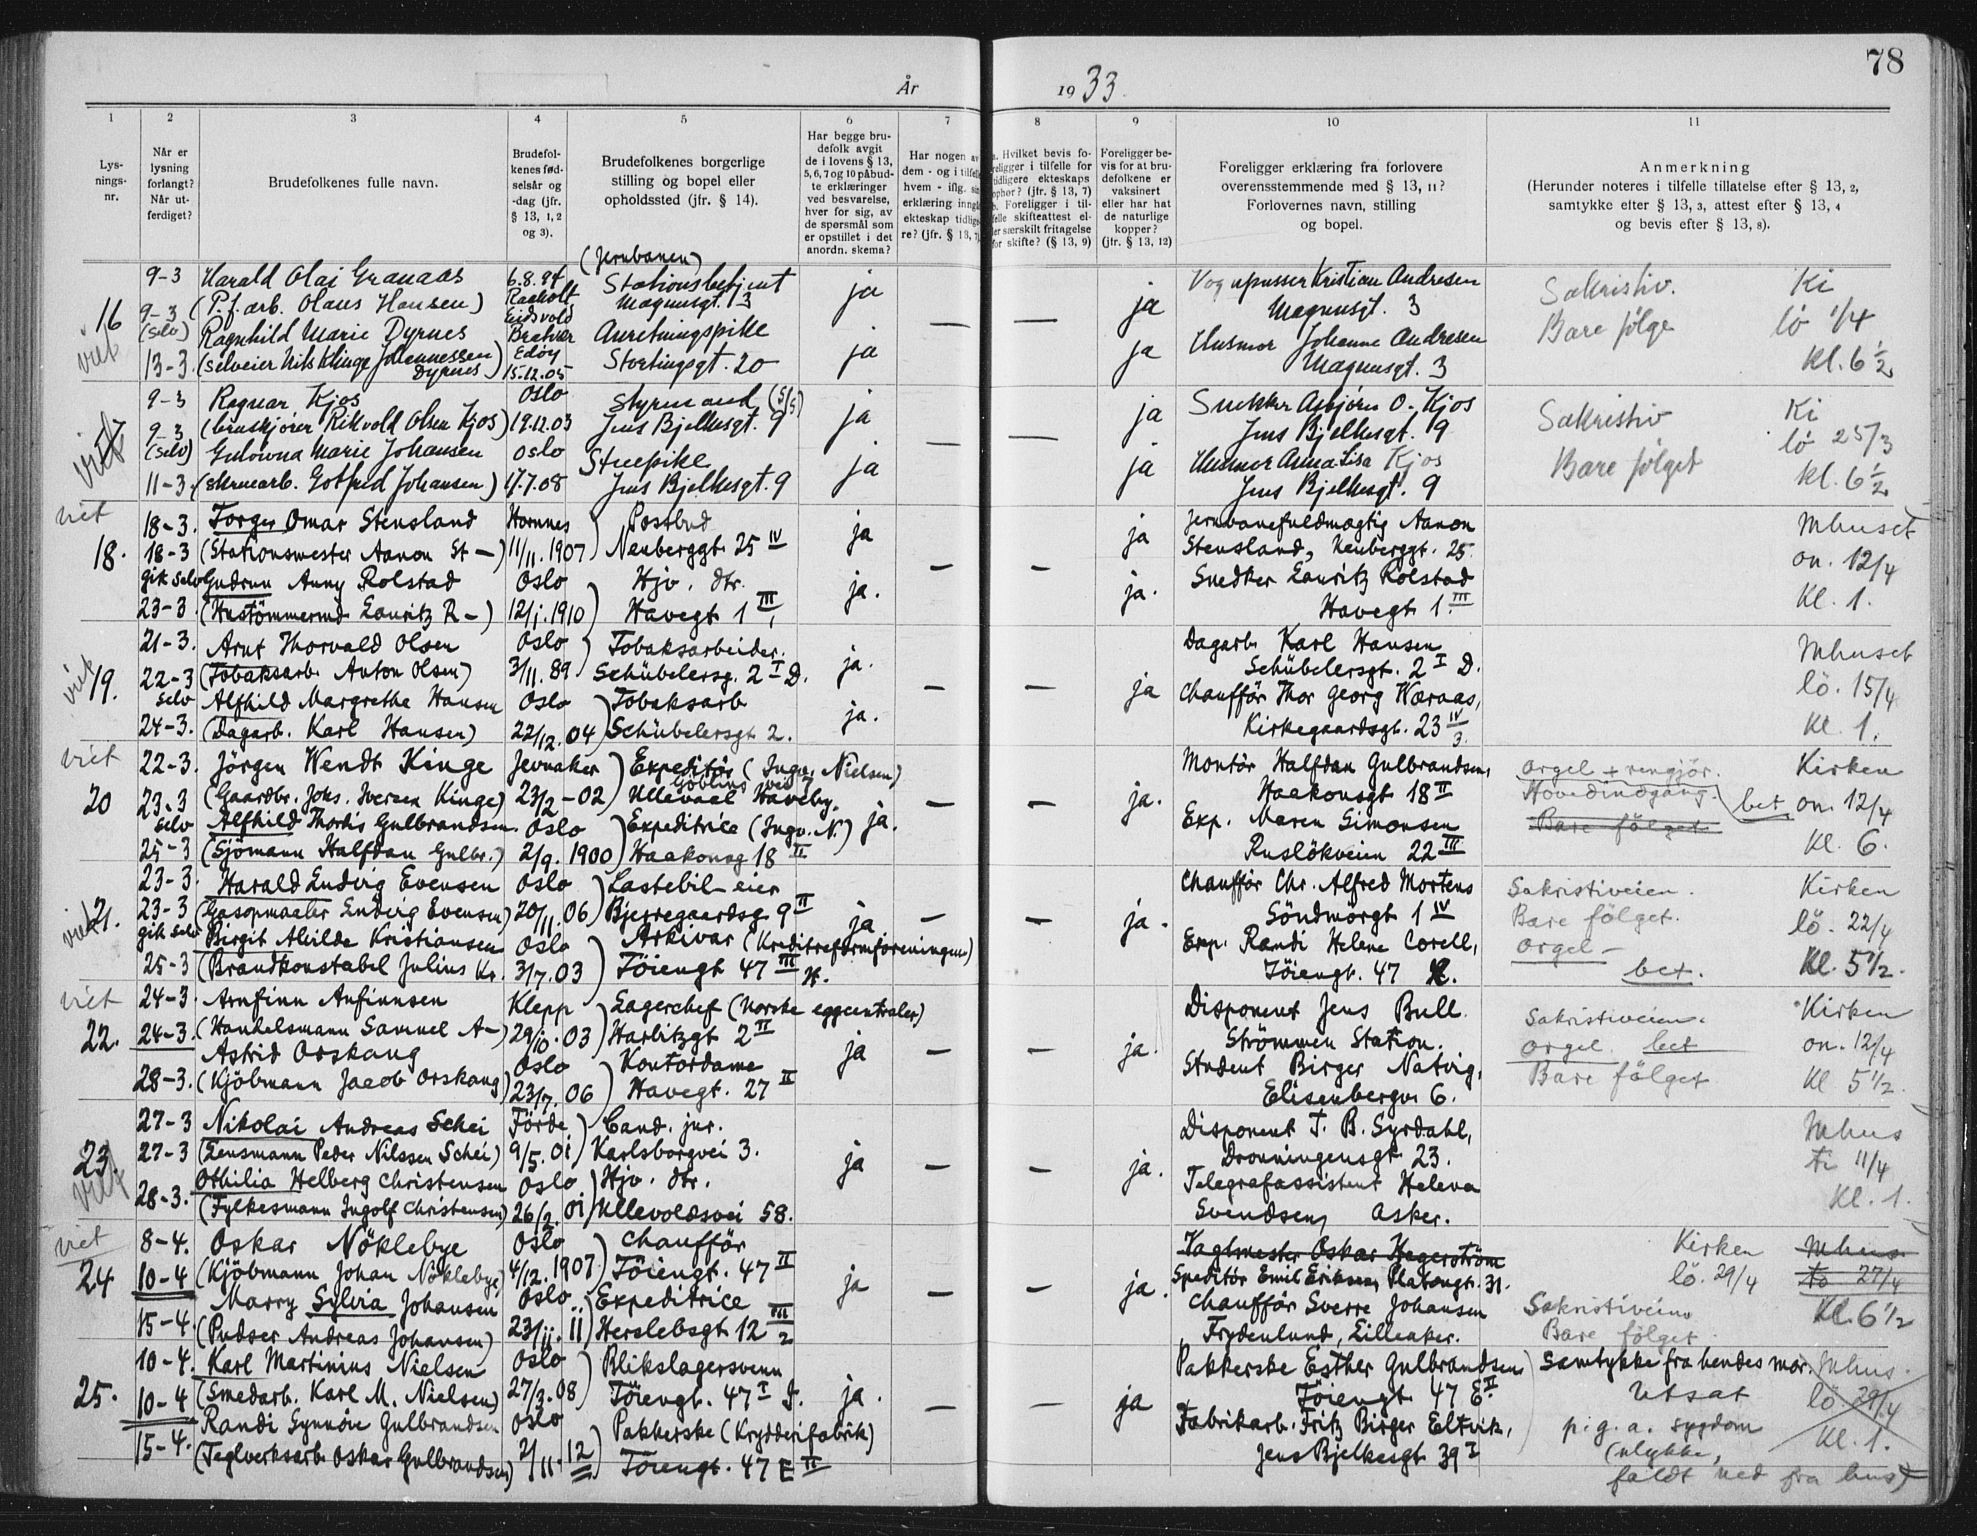 78
År 1933.
1
2
3
4
5
6
7
8
9
10
11
Lys-
nings-
nr.
Når er
lysning
forlangt?
Når ut-
ferdiget?
Brudefolkenes fulle navn.
Brudefol-
kenes fød-
selsår og
-dag (jfr.
§ 13, 1, 2
og 3).
Brudefolkenes borgerlige
stilling og bopel eller
opholdssted (jfr. § 14).
Har begge bru-
defolk avgit
de i lovens § 13,
5, 6, 7 og 10 påbud-
te erklæringer
ved besvarelse,
hver for sig, av
de spørsmål som
er opstillet i det
anordn. skema?
Har nogen av
dem - og i tilfelle
hvem - iflg. sin
erklæring inngå
ekteskap tidlige-
re? (jfr. § 13, 7)
a. Hvilket bevis fo-
religger i tilfelle for
tidligere ekteskaps
ophør? (jfr. § 13, 7)
b. Foreligger i til-
felle skifteattest el-
ler særskilt fritagelse
for skifte? (§ 13, 9)
Foreligger be-
vis for at bru-
defolkene er
vaksinert
eller har hat
de naturlige
kopper?
(jfr. § 13, 12)
Foreligger erklæring fra forlovere
overensstemmende med § 13, 11?
Forlovernes navn, stilling
og bopel.
Anmerkning
(Herunder noteres i tilfelle tillatelse efter § 13, 2,
samtykke efter § 13, 3, attest efter § 13, 4
og bevis efter § 13, 8).
(Jernbanen)
9-3 Harald Olai Granaas 6.8.94 Stationsbetjent ja Vognpusser Kristian Andresen Sakristiv. Ki
16 9-3 (P.f.arb. Olaus Hansen) Raaholt Eidsvold Magnusgt. 3 — — ja Magnusgt. 3 Bare følge lö 1/4
viet (selv) Ragnhild Marie Dyrnes Bratvær Anretningspike ja Husmor Johanne Andresen
13-3 (selveier Nils Klinge Johannessen Dyrnes) Edøy 15.12.05 Stortingsgt. 20 ja Magnusgt. 3 kl. 6 1/2
9-3 Ragnar Kjos Oslo Styrmand (S/S) ja ja Snekker Asbjörn O. Kjos Sakristiv Ki
viet 9-3 (bruskjører Rikvold Olsen Kjos) 19.12.03 Jens Bjelkesgt. 9 — — Jens Bjelkesgt. 9 lö 25/3
(selv) Gulowna Marie Johansen Oslo Stuepike ja ja Husmor Anna Lisa Kjos Bare følget
11-3 (skruearb. Gotfred Johansen) 17.7.08 Jens Bjelkesgt. 9 Jens Bjelkesgt. 9 kl. 6 1/2
viet 18-3. Torger Omar Stensland Hornnes Postbud ja ja Jernbanefuldmægtig Aanon Mhuset
18. 18-3 (Stationsmester Aanon St—) 11/11. 1907 Neuberggt. 25 IV — — Stensland, Neuberggt. 25. on. 12/4
gik selv Gudrun Anny Rolstad Oslo Hjv. dtr. ja. ja. Snedker Lauritz Rolstad
23-3. (Hustömmermd. Lauritz R—) 12/1. 1910 Havegt 1 III Havegt 1. III Kl. 1.
21-3. Arnt Thorvald Olsen Oslo Tobaksarbeider. Dagarb. Karl Hansen Mhuset
viet 19. 22-3 (Tobaksarb. Anton Olsen) 3/11. 89 Schübelersg. 2 I D. ja. Schübelersgt. 2 I D.
selv Alfhild Margrethe Hansen Oslo Tobaksarb — — ja Chaufför Thor Georg Wæraas, lö. 15/4
24-3. (Dagarb. Karl Hansen) 22/12. 04 Schübelersgt 2. ja. Kirkegaardsgt. 23 IV/3. Kl. 1.
viet 22-3. Jörgen Wendt Kinge Jevnaker Expeditör (Ingv. Nielsen) Montör Halfdan Gulbrandsen, Orgel + rengjör. Kirken
20 23.3 (Gaardbr. Johs. Iversen Kinge) 23/2 - 02 Ullevaal Haveby. — — ja. Haakonsgt 18 II Hovedindgang. bet on. 12/4
selv Alfhild Thordis Gulbrandsen. Oslo Expeditrice (Ingv. N.) ja. Exp. Maren Simonsen Bare fölget
25-3 (Sjömann Halfdan Gulbr.) 2/9. 1900 Haakonsg 18 II Ruslökveien 22 III Kl. 6.
23-3. Harald Ludvig Evensen Oslo Lastebil-eier Chaufför Chr. Alfred Mortens Sakristiveien. Kirken
viet 21. 23-3 (Gasopmaaler Ludvig Evensen) 20/11. 06 Bjerregaardsg 9 II ja — — ja. Söndmörgt 1 IV Bare fölget. lö. 22/4
gik selv Birgit Alvilde Kristiansen Oslo Arkivar (Kreditreformforeningen) Exp. Randi Helene Corell, Orgel—
25-3 (Brandkonstabel Julius Kr. 3/7. 03 Töiengt 47 III H. Töiengt. 47 bet. Kl. 5 1/2.
viet 24-3. Arnfinn Anfinnsen Klepp Lagerchef (Norske eggcentraler) Disponent Jens Bull. Sakristiveien. Kirken
22. 24-3. (Hanhelsmann Samuel A—) 29/10. 03 Harbitzgt 2 II ja — — ja. Strömmen Station. Orgel bet on. 12/4
Astrid Orskaug Oslo Kontordame Student Birger Natvig,
28-3. (Kjöbmann Jacob Orskaug) 23/7. 06 Havegt. 27 II Elisenbergv. 6. Bare fölget Kl 5 1/2.
27-3 Nikolai Andreas Schei Förde Cand. jur. Disponent T. B. Syrdahl, Mhus
23. 27-3 (Lensmann Peder Nilssen Schei) 9/5. 01 Karlsborgvei 3. ja — — ja. Dronningensgt 23. ti 11/4
viet Othilia Helberg Christensen Oslo Hjv. dtr. Telegrafassistent Helena
28-3. (Fylkesmann Ingolf Christensen) 26/2. 01 Ullevoldsvei 58. Svendsen, Asker. Kl. 1.
viet 8-4. Oskar Nöklebye Oslo Chaufför Vagtmester Oskar Hagerström Kirken Mhus
24 10-4 (Kjöbmann Johan Nöklebye) 4/12. 1907 Töiengt. 47 II ja — — ja. Speditör Emil Eriksen, Platougt. 31. lö. 29/4 to 27/4
Marry Sylvia Johansen Oslo Expeditrice Chaufför Sverre Johansen Sakristiveien Kl. 6 1/2
15-4. (Pudser Andreas Johansen) 23/11. 11 Herslebsgt 12 III/2 Frydenlund, Lilleaker. Bare fölget
10-4. Karl Martinius Nielsen Oslo Blikslagersvenn Pakkerske Esther Gulbrandsen Samtykke fra hendes mor. Mhus.
25. 10-4 (Smedarb. Karl M. Nielsen) 27/3. 08 Töiengt. 47 I ja. — — ja Töiengt 47 E II. Utsat lö. 29/4
Randi Synnöve Gulbrandsen Oslo Pakkerske (Krydderifabrik) Fabrikarb. Fritz Birger Eltvik, p.g.a. sygdom Kl. 1.
15-4. (Teglverksarb. Oskar Gulbrandsen) 2/11. 12 Töiengt. 47 E II Jens Bjelkesgt 39 I (ulykke,
faldt ned fra hus)